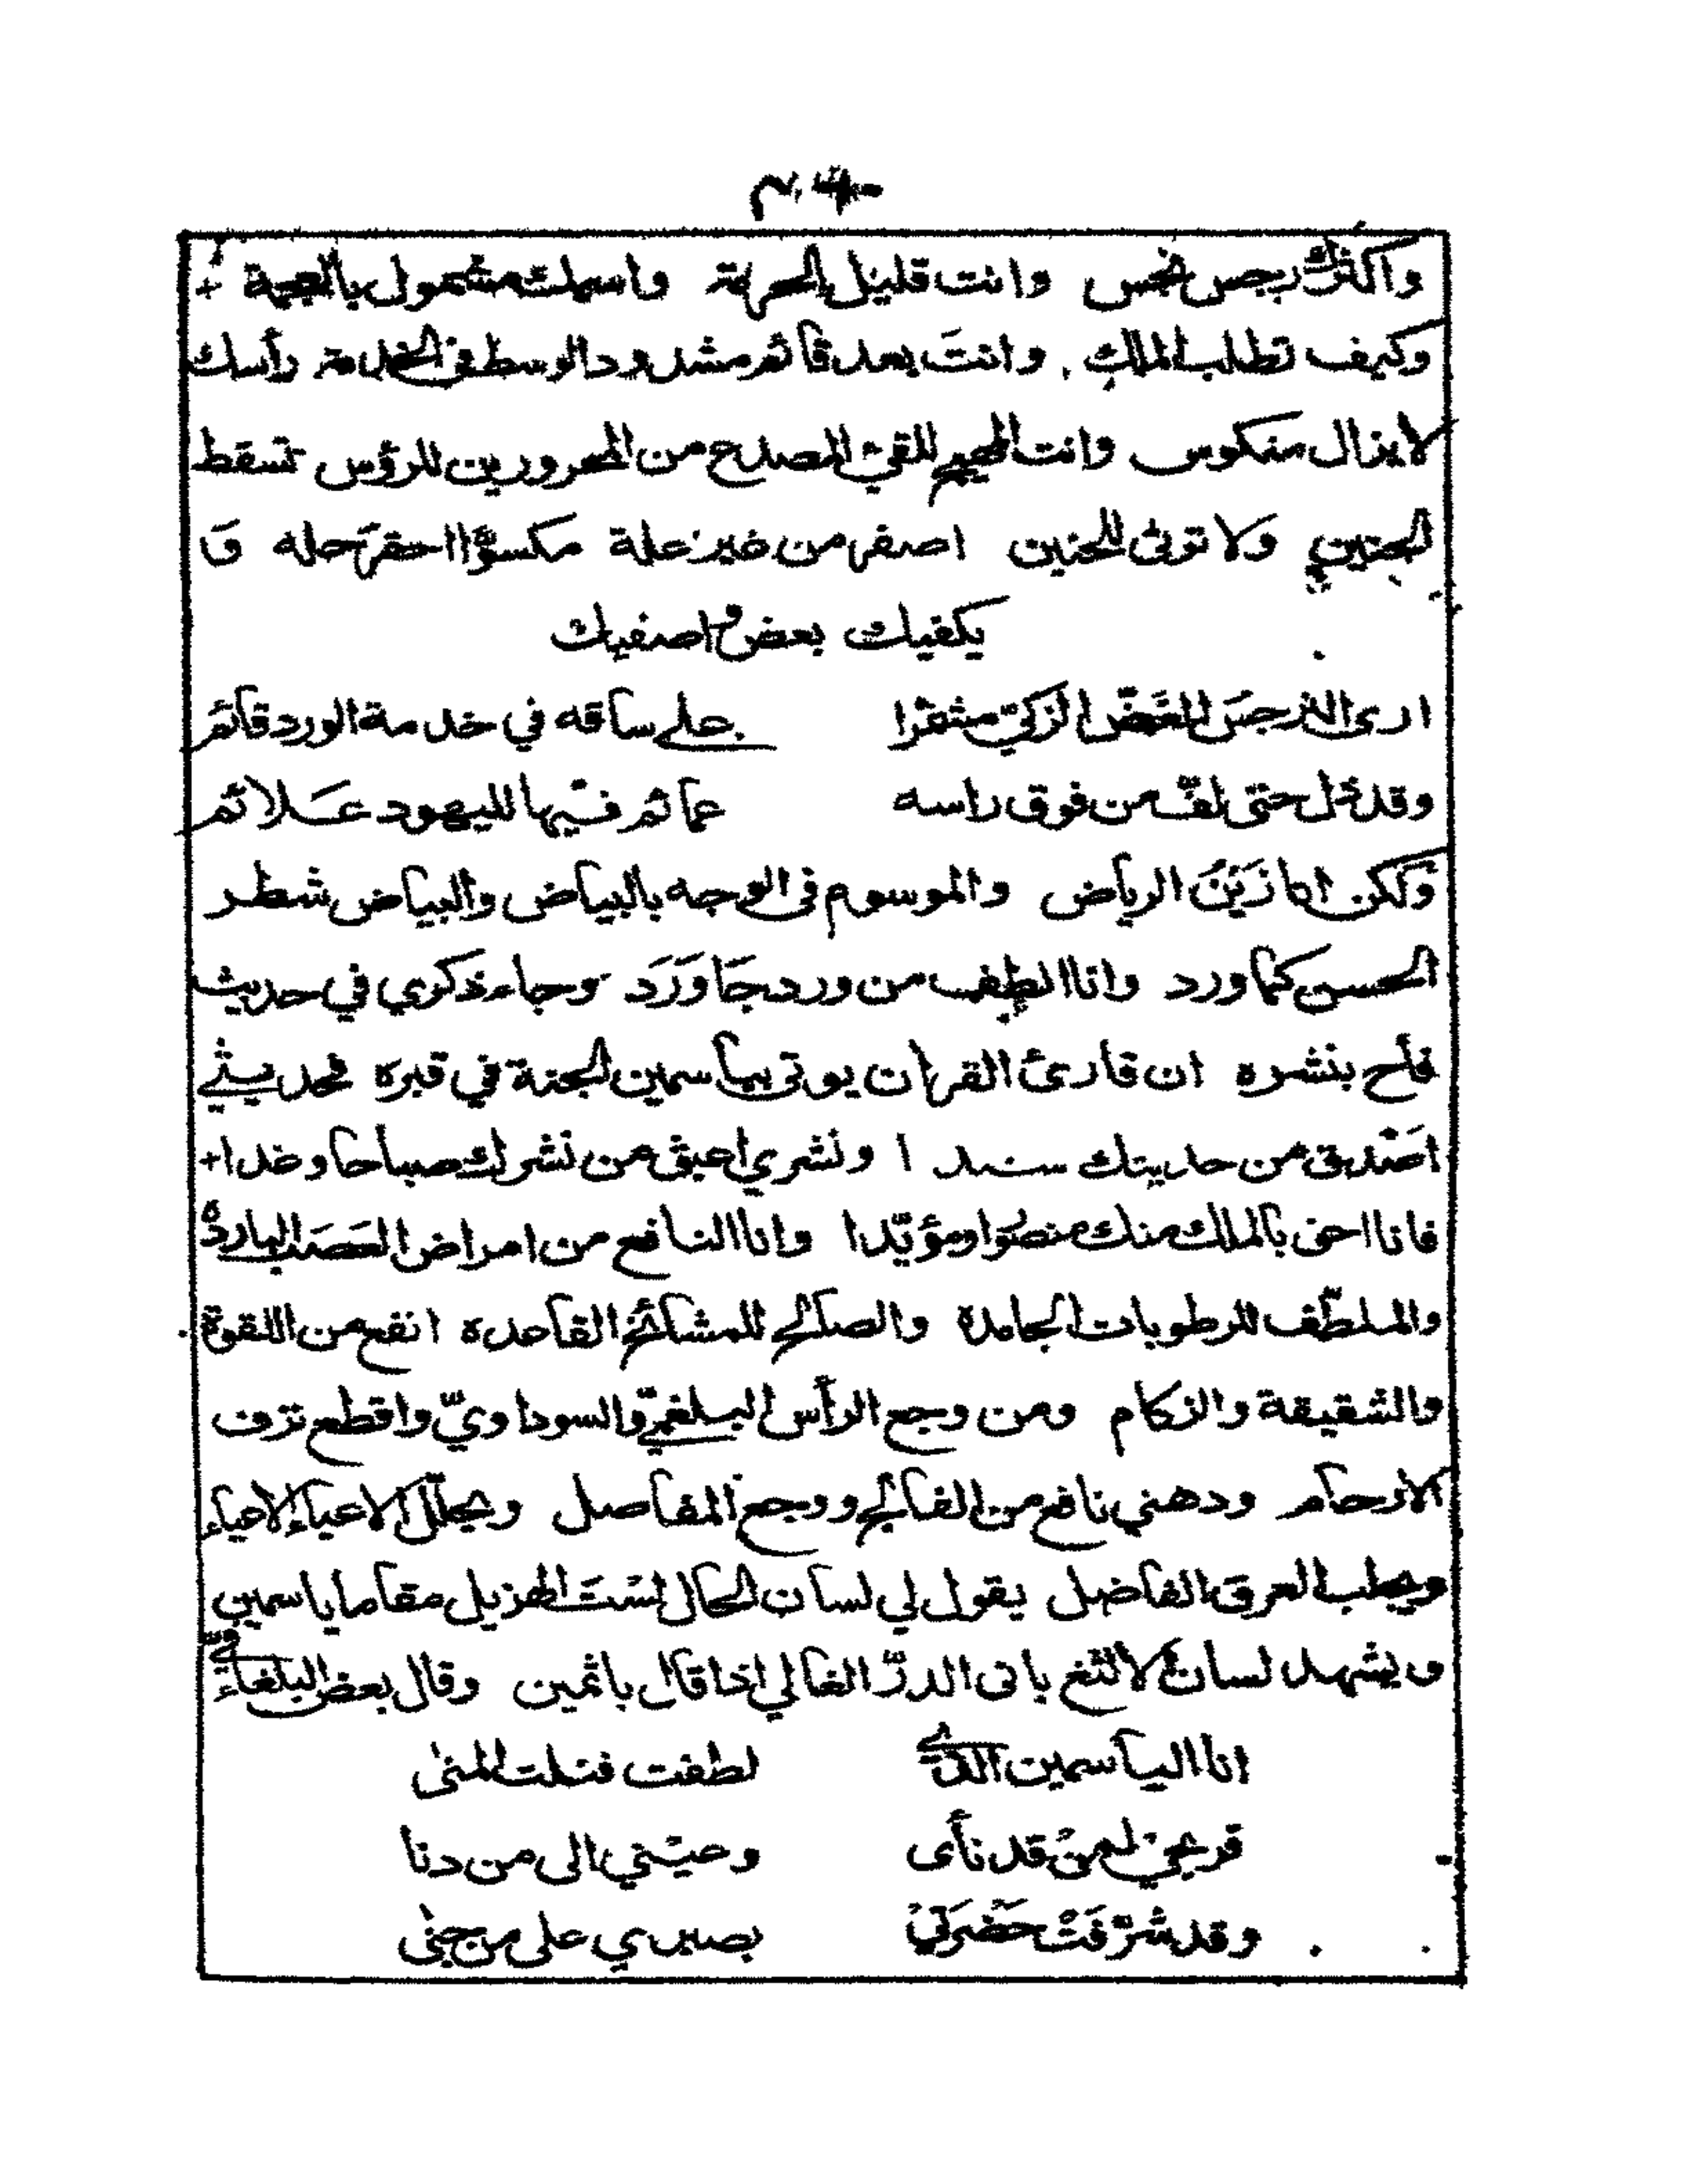 واكثرك رجس نجس وانت قليل الحرمة واسمك مشمول بالعجمة
وكيف تطلب الملك وانتَ بعد قائم مشدود الوسط في الخدمة رأسك
لا يزال منكوس وانت المهيج للقئ المصدح من المحرورين للرؤس تسقط
الجنين ولا توثى للحنين اصفر من غير علة مكسوّا احقر حله وَ
يكفيك بعض واصفيك
ارى النرجس الغضّ الزكيّ مشمرا على ساقه في خدمة الورد قائم
وقد ذل حتى لفّ من فوق راسه عمائم فيها لليهود علائم
ولكن انا زَيْنُ الرياض والموسوم فى الوجه بالبياض والبياض شطر
الحسن كما ورد وانا الطف من ورد جَا وَرَد وجاء ذكري في حديث
فاح بنشره ان قارئ القران يوتى بياسمين الجنة في قبره فحديثي
اصْدق من حديثك سندا ونشري اعبق من نشرك صباحا وغدا
فانا احق بالملك منك منصوّا ومؤيّدا وانا النافع من امراض العصب الباردة
والملطّف للرطوبات الجامدة والصالح للمشائخ القاعده انفع من اللقوة
والشقيقة والزكام ومن وجع الرأس البلغميّ والسوداويّ واقطع نزف
الارحام ودهني نافع من الفالج ووجع المفاصل ويحلّل الاعياء الاعياء
ويجلب العرق الفاضل يقول لي لسان الحال لسْتَ الهزيل مقاما يا سمين
ويشهد لسان الالثغ بانى الدرّ الغالي اذا قال ياثمين وقال بعض البلغاء فيّ
انا الياسمين الذي لطفت فنلت المنى
فريحي لمنْ قد نأى وعيْني الى من دنا
وقد شرّفَتْ حَضْرَتيْ بصبري على من جنى